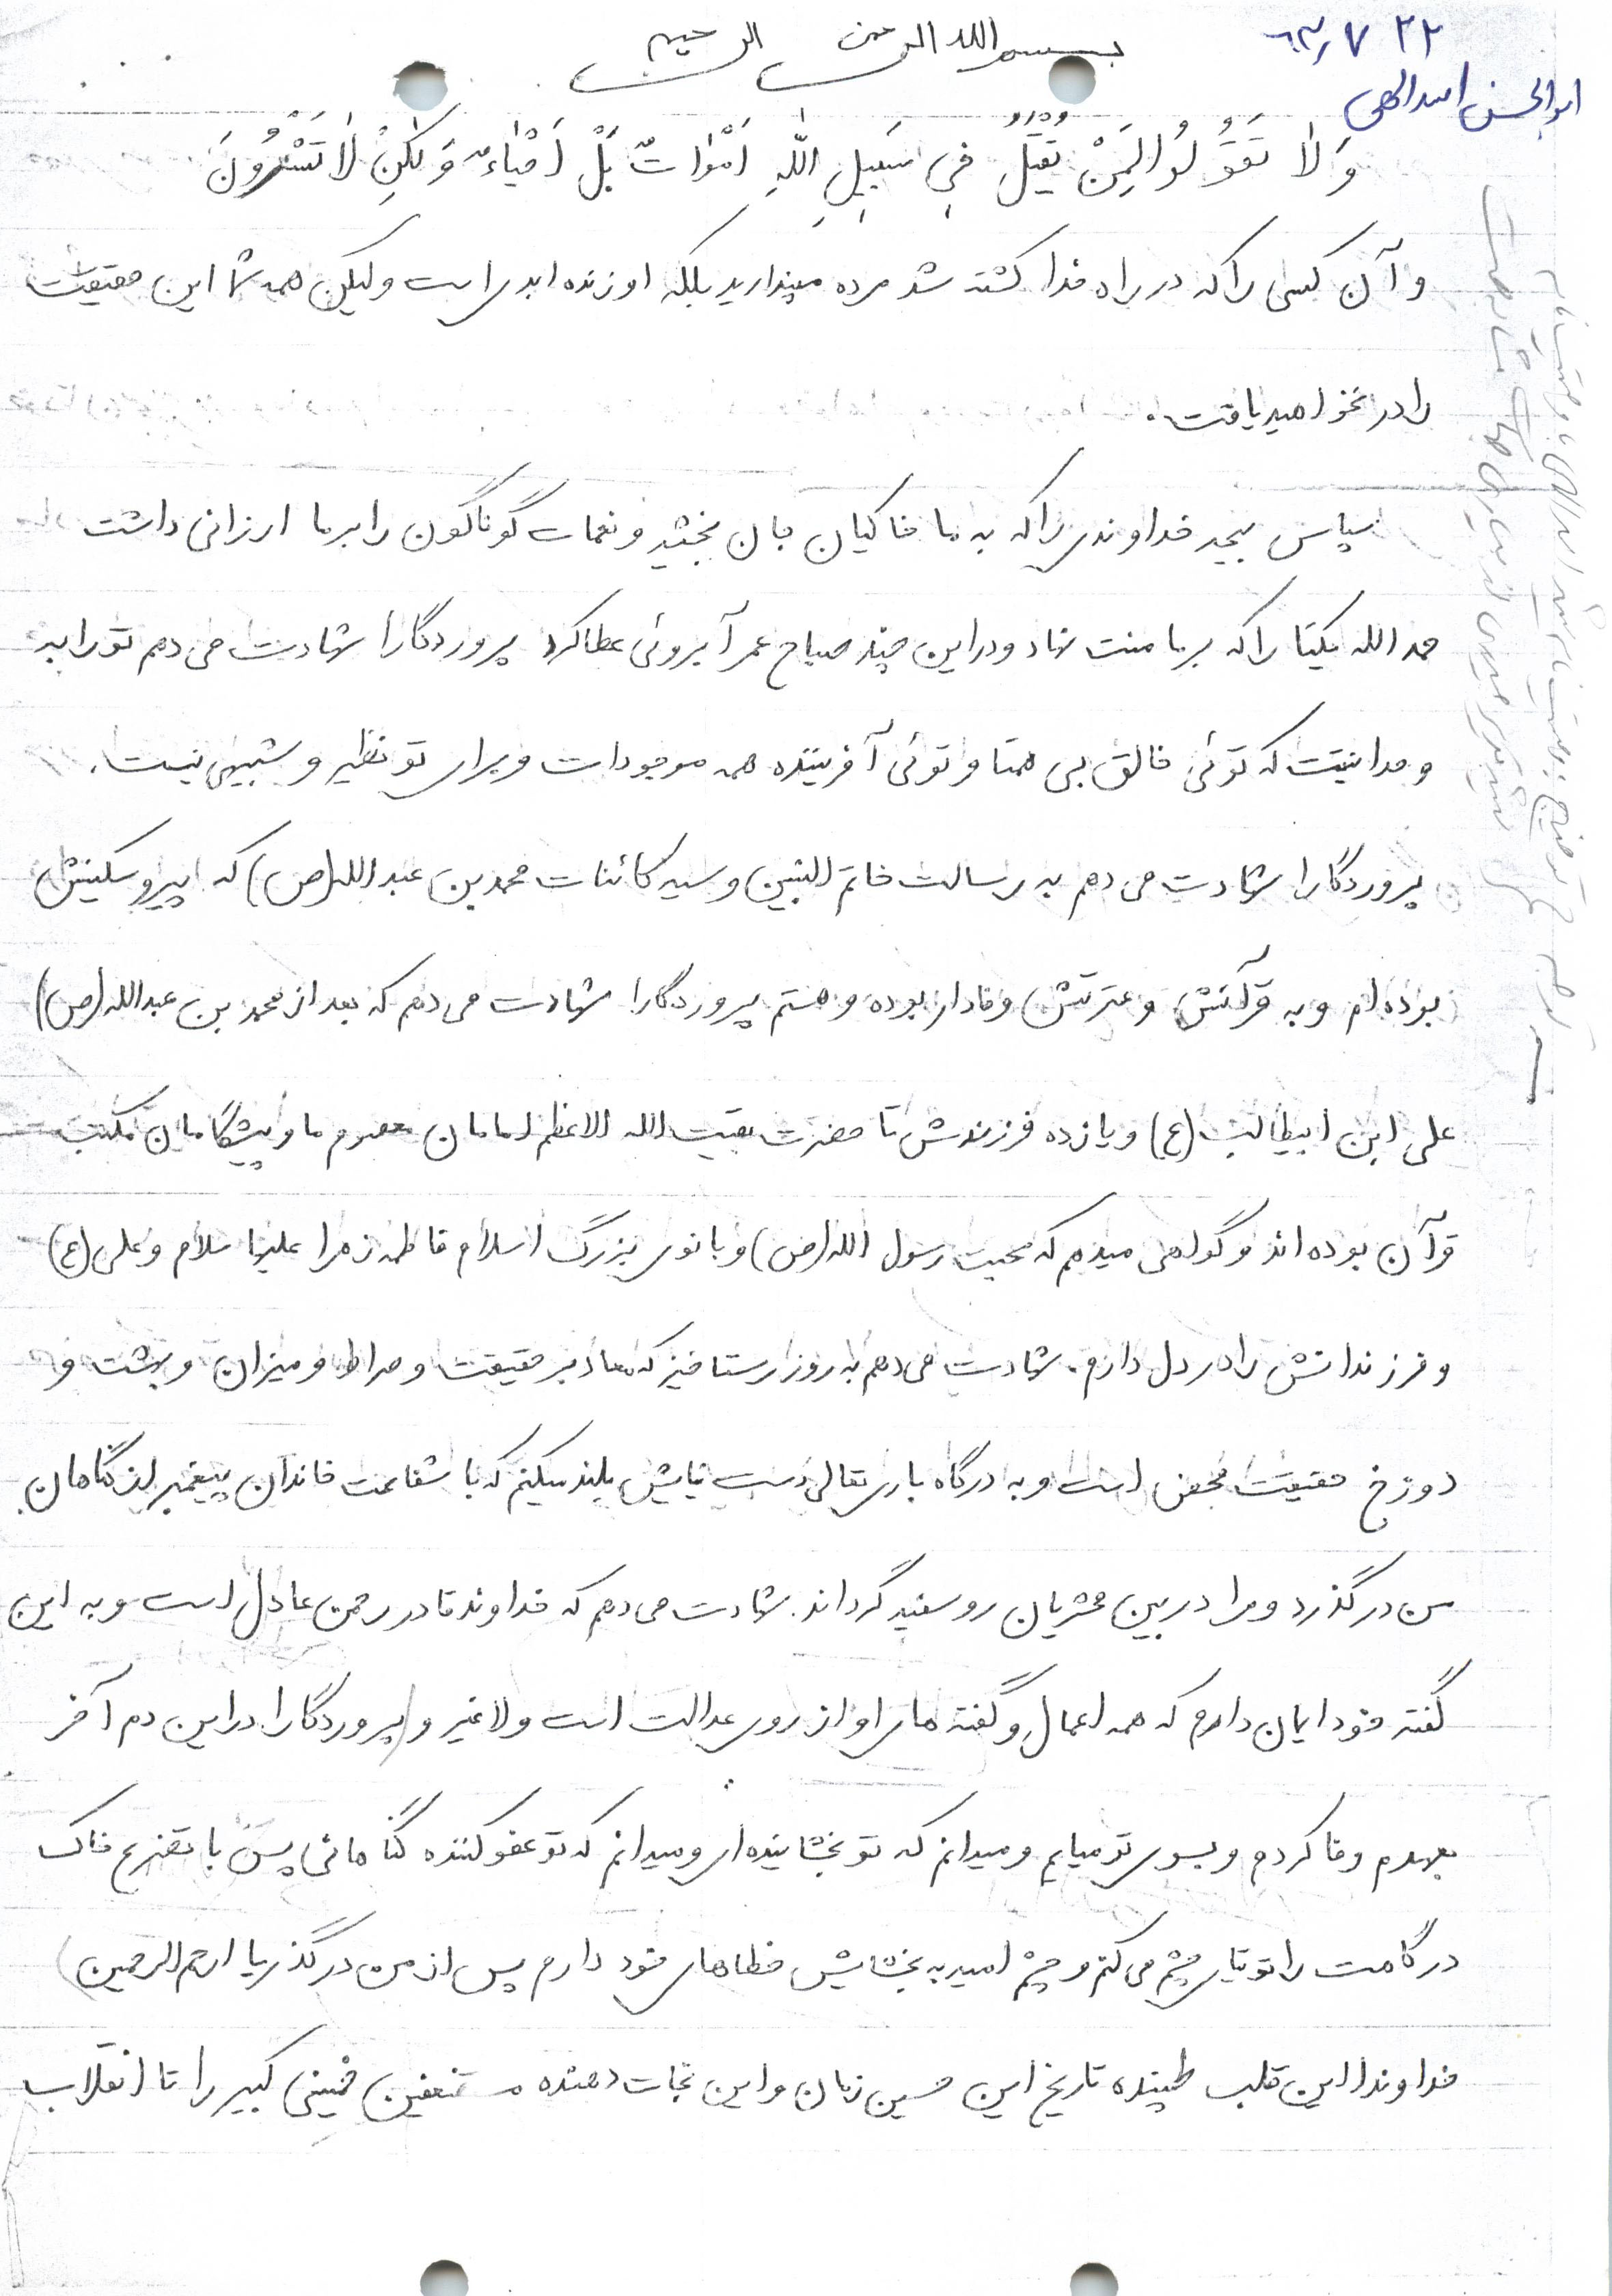 ۶۳٫۷ ۲۲
ابوالحسن اسدالهی
بسم الله الرحمن الرحیم
وَلاٰ تَقَوُلُوا لِمَنْ یُقْتَلُ فِی سَبیلِ اللّٰهِ اَمْوٰاتٌ بَلْ اَحْیٰاءٌ وَلٰکِنْ لاٰ تَشْعُرُونَ
و آن کسی را که در راه خدا کشته شد مرده مپندارید بلکه او زنده ابدی است ولیکن همه شما این حقیقت
را در نخواهید یافت.
سپاس بیحد خداوندی را که به ما خاکیان جان بخشید و نعمات گوناگون را بر ما ارزانی داشت
حمد الله یکتا را که بر ما منت نهاد و در این چند صباح عمر آبروئی عطا کرد پروردگارا شهادت می دهم تو را به
وحدانیتت که توئی خالق بی همتا و توئی آفریننده همه موجودات و برای تو نظیر و شبیهی نیست.
پروردگارا شهادت می دهم به رسالت خاتم النبین و سید کائنات محمد بن عبدالله (ص) که پیرو سکینش
بوده ام و به قرآنش و عترتش وفادار بوده و هستم پروردگارا شهادت می دهم که بعد از محمد بن عبدالله (ص)
علی ابن ابیطالب (ع) و یازده فرزندش تا حضرت بقیت الله الاعظم امامان معصوم ما و پیشگامان مکتب
قرآن بوده اند و گواهی میدهم که محبت رسول الله (ص) و بانوی بزرگ اسلام فاطمه زهرا علیها سلام و علی (ع)
و فرزندانش را در دل دارم. شهادت می دهم به روز رستاخیز که معاد بر حقیقت و صراط و میزان و بهشت و
دوزخ حقیقت محض است و به درگاه باری تعالی دست نیایش بلند میکنم که با شفاعت خاندان پیغمبر از گناهان
من درگذرد و مرا در بین محشریان روسفید گرداند. شهادت می دهم که خداوند قادر رحمن عادل است و به این
گفته خود ایمان دارم که همه اعمال و گفته های او از روی عدالت است و لاغیر و پروردگارا در این دم آخر
بعهدم وفا کردم و بسوی تو میایم و میدانم که تو بخشاینده ای و میدانم که تو عفو کننده گناهانی پس با تضرع خاک
درگاهت را توتیای چشم می کنم و چشم امید به بخشایش خطاهای خود دارم پس از من درگذر یا ارحم الرحمین
خداوندا این قلب طپنده تاریخ این حسین زمان و این نجات دهنده مستضعفین خمینی کبیر را تا انقلاب